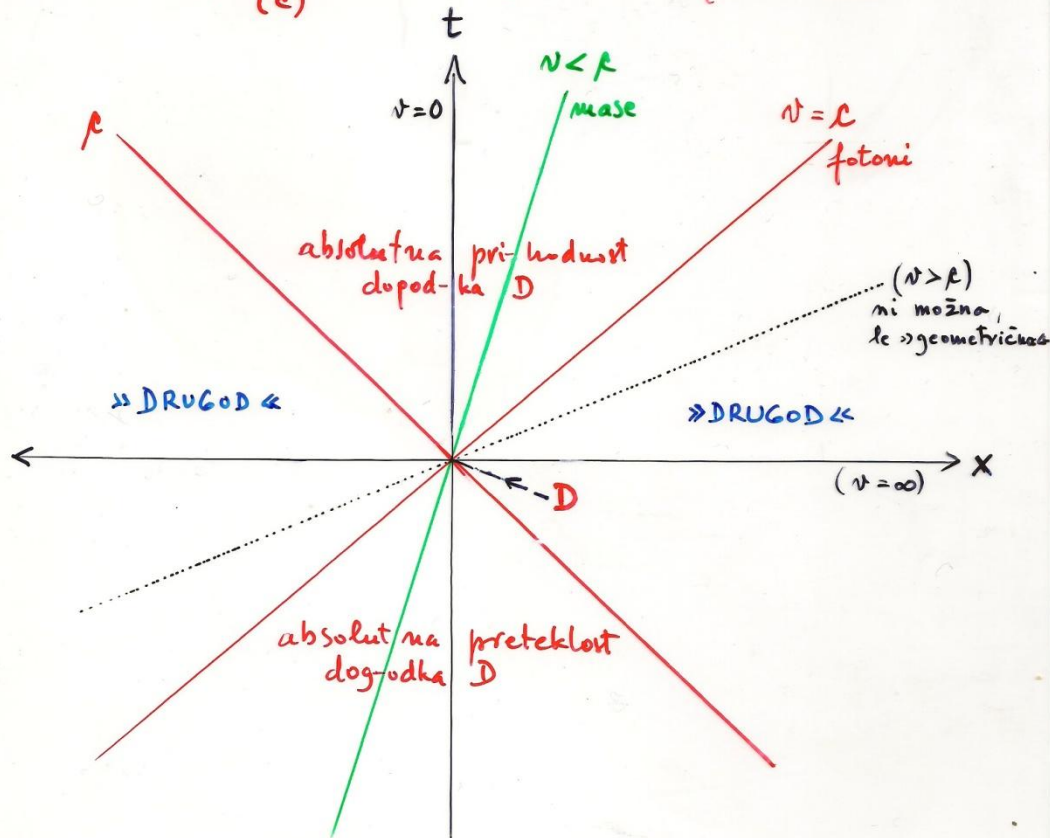 (c)
t
v < c
mase
v = 0
v = c
fotoni
c
absolutna pri-hodnost
dopod-ka D
(v > c)
ni možna,
le »geometrična«
»DRUGOD«
»DRUGOD«
x
(v = ∞)
D
absolutna preteklost
dog-odka D